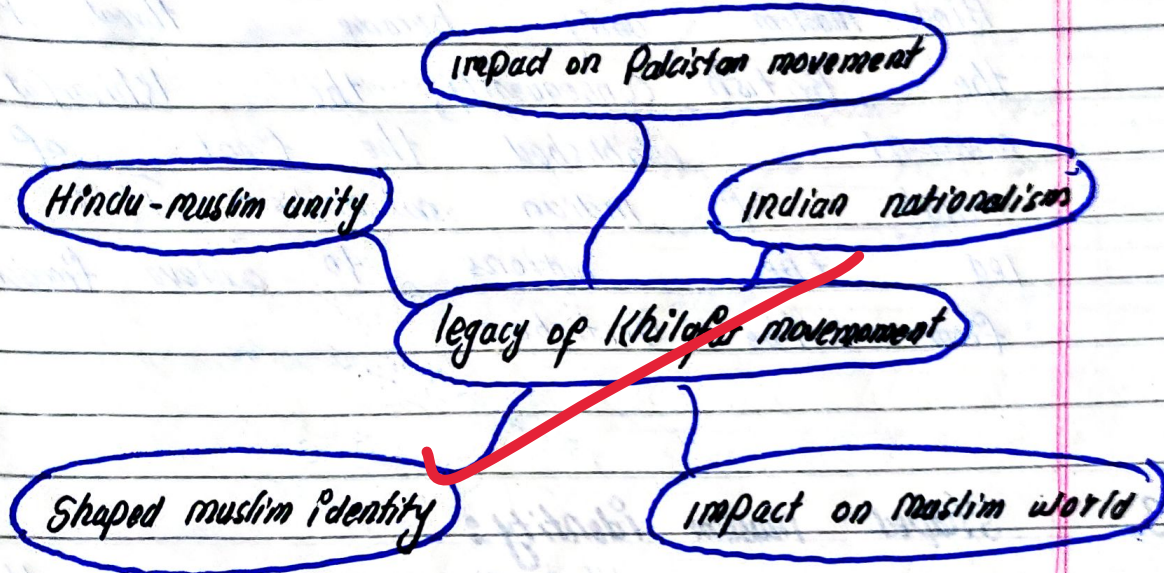 impact on Pakistan movement
Hindu-muslim unity
Indian nationalism
legacy of Khilafat movemoment
Shaped muslim identity
impact on Muslim world